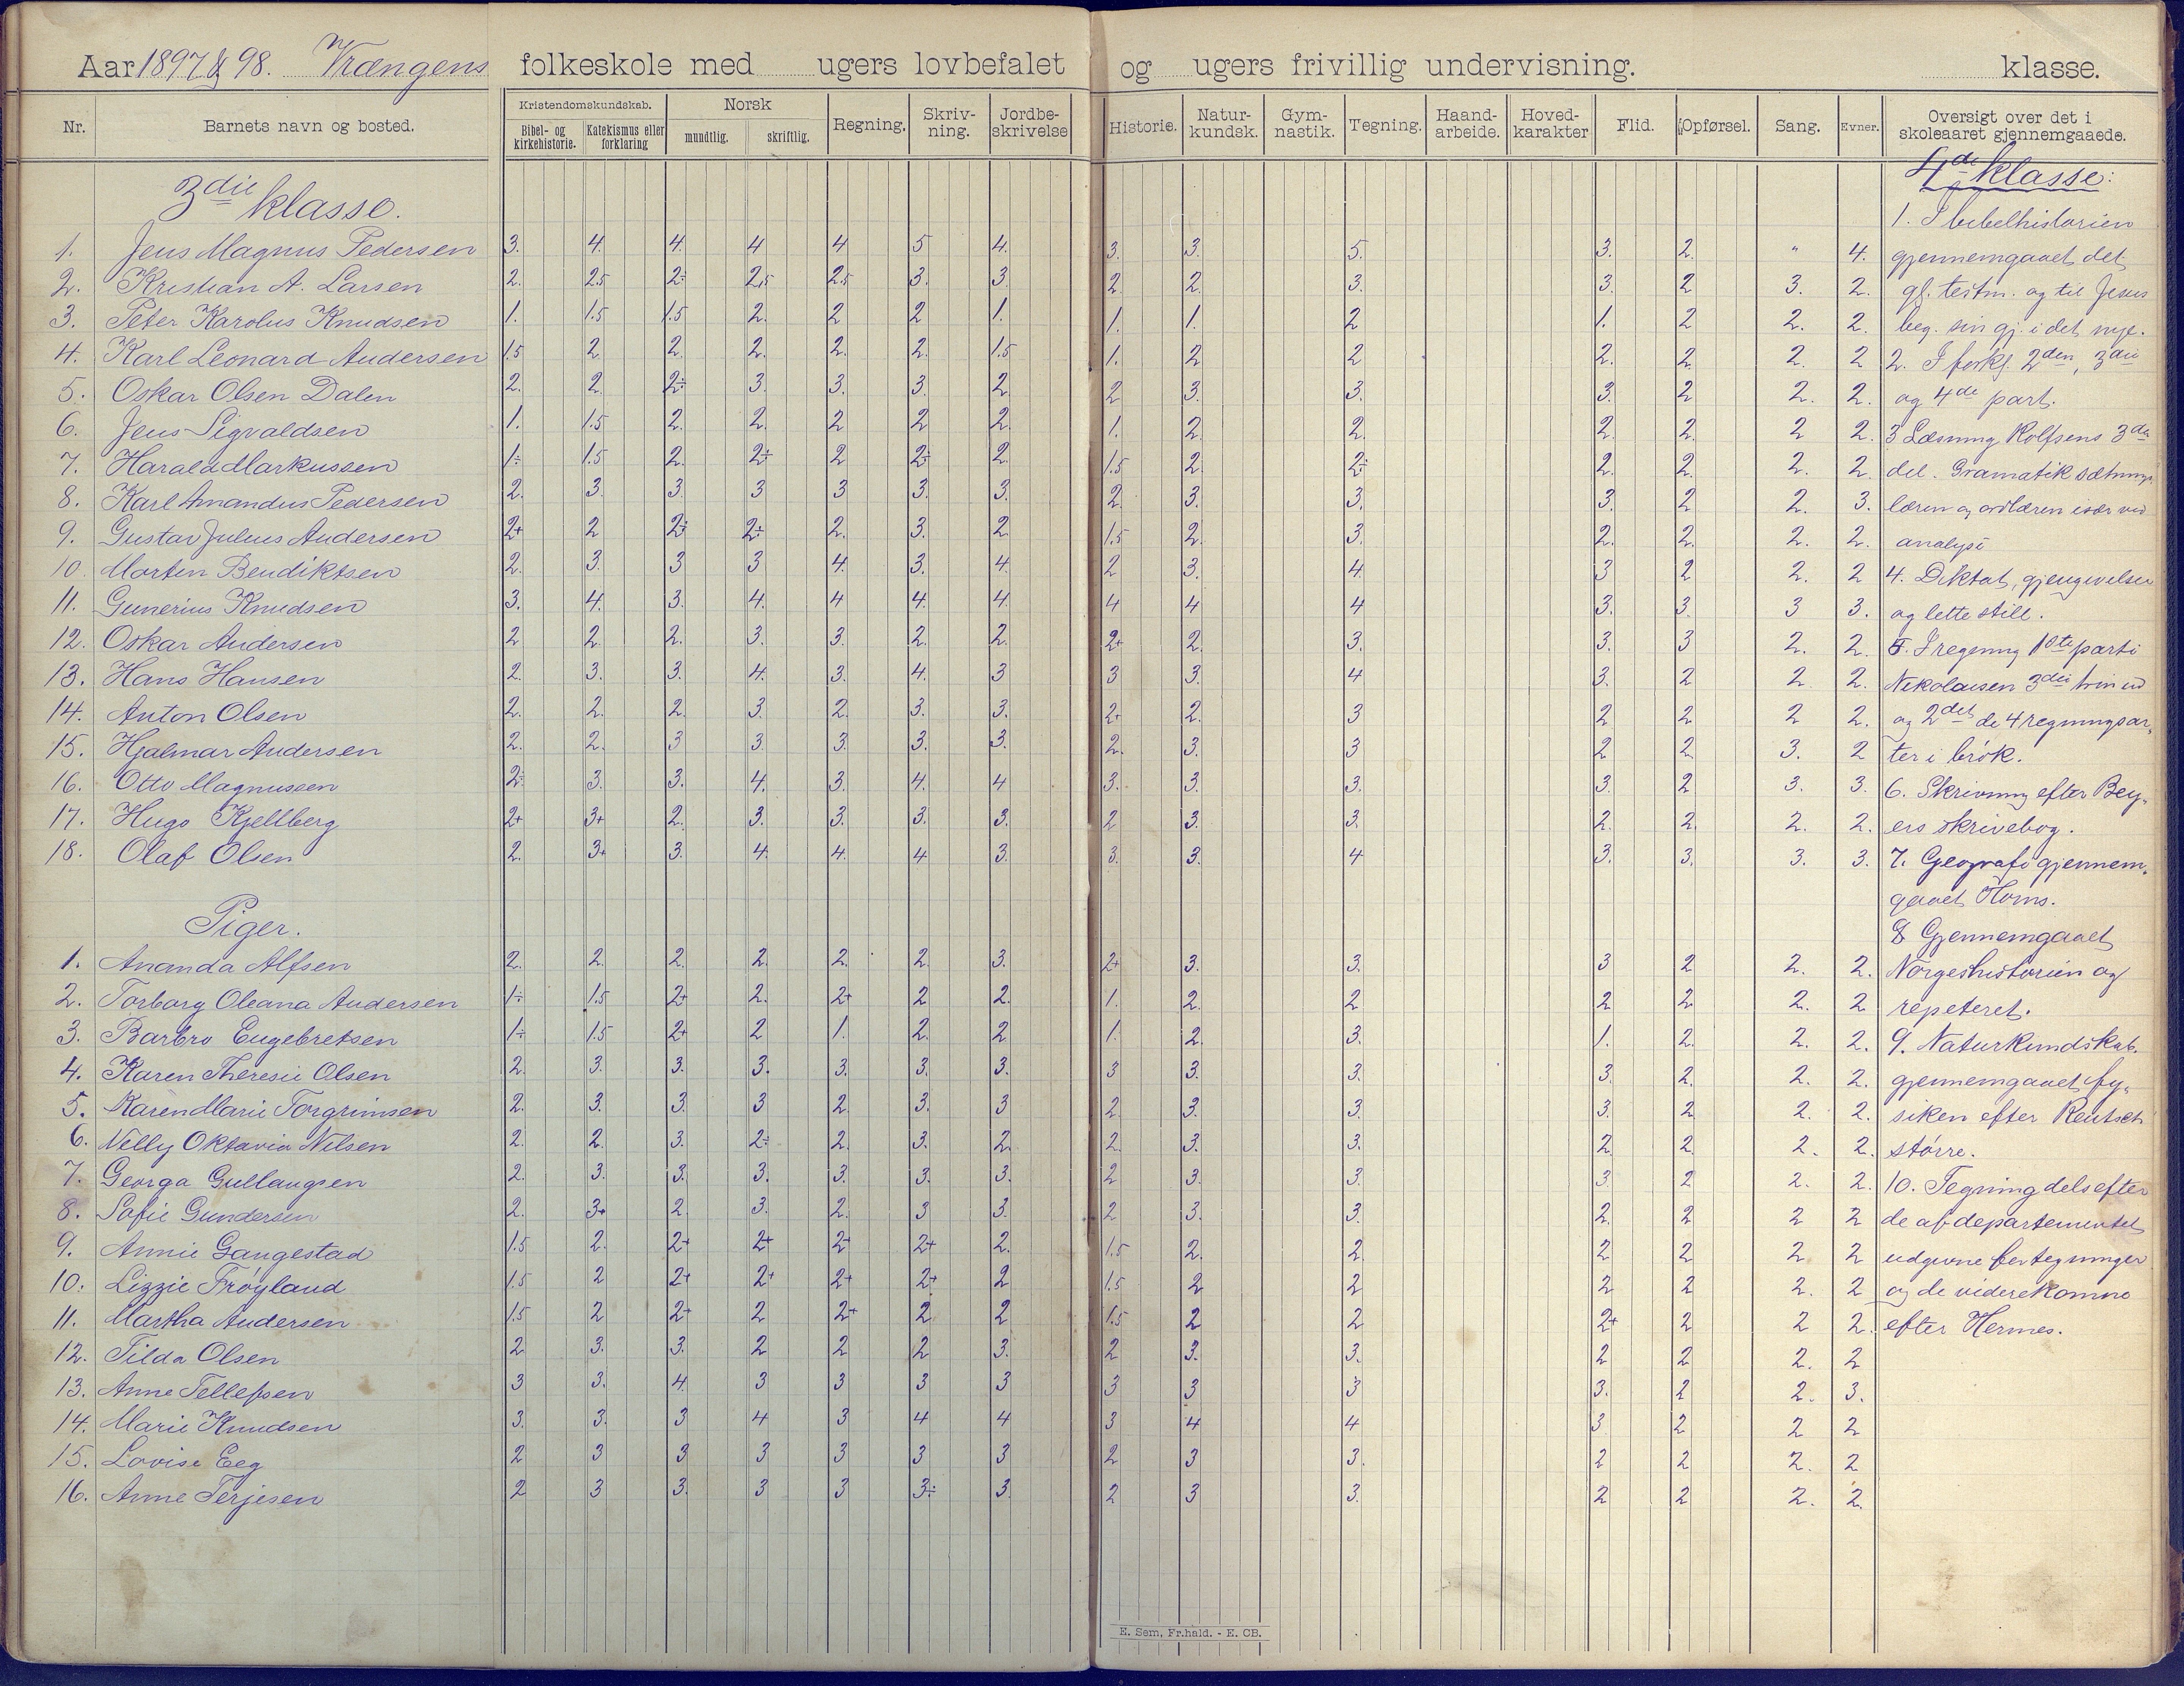 Aar 1897 & 98. Vrængens folkeskole med ugers lovbefalet og ugers frivillig undervisning. klasse.
Nr. Barnets navn og bosted. Kristendomskundskab. Bibel- og kirkehistorie. Katekismus eller forklaring Norsk mundtlig. skriftlig. Regning. Skriv-ning. Jordbe-skrivelse Historie. Natur-kundsk. Gym-nastik. Tegning. Haand-arbeide. Hoved-karakter Flid. Opførsel. Sang. Evner. Oversigt over det i skoleaaret gjennemgaaede.
3die klasse. 4de klasse:
1. I bibelhistorien
1. Jens Magnus Pedersen 3. 4. 4. 4 4 5 4. 3. 3. 5. 3. 2. " 4. gjennemgaaet det
2. Kristian A. Larsen 2. 2.5 2÷ 2,5 2.5 3. 3. 2. 2. 3. 3. 2 3. 2. gl. testm. og til Jesus
3. Peter Karolus Knudsen 1. 1.5 1.5 2. 2 2 1. 1. 1. 2 1. 2 2. 2. beg. sin gj. i det nye.
4. Karl Leonard Andersen 1.5 2. 2. 2. 2. 2. 1.5 1. 2 2 2. 2. 2. 2 2. I forkl. 2den, 3die
5. Oskar Olsen Dalen 2. 2. 2÷ 3. 3. 3. 2. 2 3. 3. 3. 2 2. 2. og 4de part.
6. Jens Sigvaldsen 1. 1.5 2. 2. 2 2 2. 1. 2. 2. 2. 2. 2 2. 3 Læsning Rolfsens 3die
7. Harald Markussen 1÷ 1.5 2. 2÷ 2 2÷ 2. 1.5 2. 2÷ 2. 2. 2. 2. del. Gramatik sætnings
8. Karl Amandus Pedersen 2. 3. 3. 3 3 3. 3. 2. 3. 3. 3. 2 2. 3. læren og ordlæren især ved
9. Gustav Julius Andersen 2+ 2 2÷ 2÷ 2. 3. 2. 1.5 2. 3. 2. 2. 2. 2. analyse
10. Morten Bendiktsen 2. 3. 3 3 4. 3. 4. 2 3. 4. 3 2 2. 2 4. Diktat, gjengivelser
11. Gunerius Knudsen 3. 4. 3. 4. 4 4. 4. 4 4 4 3. 3. 3 3. og lette still.
12. Oskar Andersen 2 2. 2. 3. 3. 2. 2. 2+ 2. 3. 3. 3 2. 2. 5. I regning 1ste parti
13. Hans Hansen 2. 3. 3. 4. 3. 4. 3 3 3. 4 3. 2 2 2. Nikolaisen 3die trin ud
14. Anton Olsen 2. 2. 2. 3. 2. 3. 3. 2+ 2. 3 2 2 2 2. og 2det de 4 regningsar-
15. Hjalmar Andersen 2. 2. 3 3. 3. 3. 3. 2. 3. 3 2 2. 3. 2 ter i brøk.
16. Otto Magnussen 2÷ 3. 3. 4. 3. 4. 4 3. 3. 3. 3. 2 3. 3. 6. Skrivning efter Bey-
17. Hugo Kjellberg 2+ 3+ 2. 3. 3. 3. 3. 2 3. 3. 2. 2. 2. 2. ers skrivebog.
18. Olaf Olsen 2. 3+ 3. 4. 4. 4 3. 3. 3. 4 3. 3. 3. 3. 7. Geografi gjennem-
gaaet Horns.
Piger. 8 Gjennemgaaet
1. Ananda Alfsen 2. 2. 2. 2. 2. 2. 3. 2+ 3. 3. 3 2 2. 2. Norgeshistorien og
2. Torborg Oleana Andersen 1÷ 1.5 2+ 2. 2+ 2 2. 1. 2. 2 2 2. 2. 2 repeteret.
3. Barbro Engebretsen 1÷ 1.5 2+ 2 1. 2. 2 1. 2. 3. 1. 2. 2. 2. 9. Naturkundskab.
4. Karen Theresie Olsen 2. 3. 3. 3. 3. 3. 3. 3 3. 3. 3. 2. 2. 2. gjennemgaaet fy-
5. Karen Marie Torgrimsen 2. 3. 3. 3 2. 3. 3 2. 3. 3. 3. 2 2. 2. siken efter
6. Nelly Oktavia Nilsen 2. 2. 3. 2÷ 2. 3. 2. 2. 3. 3. 2. 2. 2. 2. større.
7. Georga Gullaugsen 2. 3. 3. 3. 3. 3. 3. 2 3. 3. 3. 2 2. 2. 10. Tegning dels efter
8. Sofie Gundersen 2. 3+ 2. 3. 2. 3 3. 2 3. 3. 2. 2 2 2 de af departementet
9. Annie Gangestad 1.5 2. 2+ 2+ 2+ 2+ 2. 1.5 2. 2. 2 2 2 2 udgivne fortegninger
10. Lizzie Frøyland 1.5 2 2+ 2+ 2+ 2+ 2 1.5 2 2 2 2 2. 2 og de viderekomne
11. Martha Andersen 1.5 2 2+ 2 2+ 2. 2 1.5 2 2 2+ 2 2 2. efter Hermes.
12. Tilda Olsen 2 3. 3. 2 2 2 3. 2 3. 3. 2 2 2. 2
13. Anne Tellefsen 3 3. 4. 3 3 3 3 3 3 3 3. 2 2. 3.
14. Marie Knudsen 3. 3. 3 4 3 4 4 3 4 4 3 2 2 2
15. Lovise Eeg 2 3 3 3 3 3 3 2 3 3. 2 2 2. 2
16. Anne Terjesen 2 3 3. 3 3 3÷ 3. 2 3 3. 2 2 2. 2.
E. Sem, Fr.hald. - E. CB.